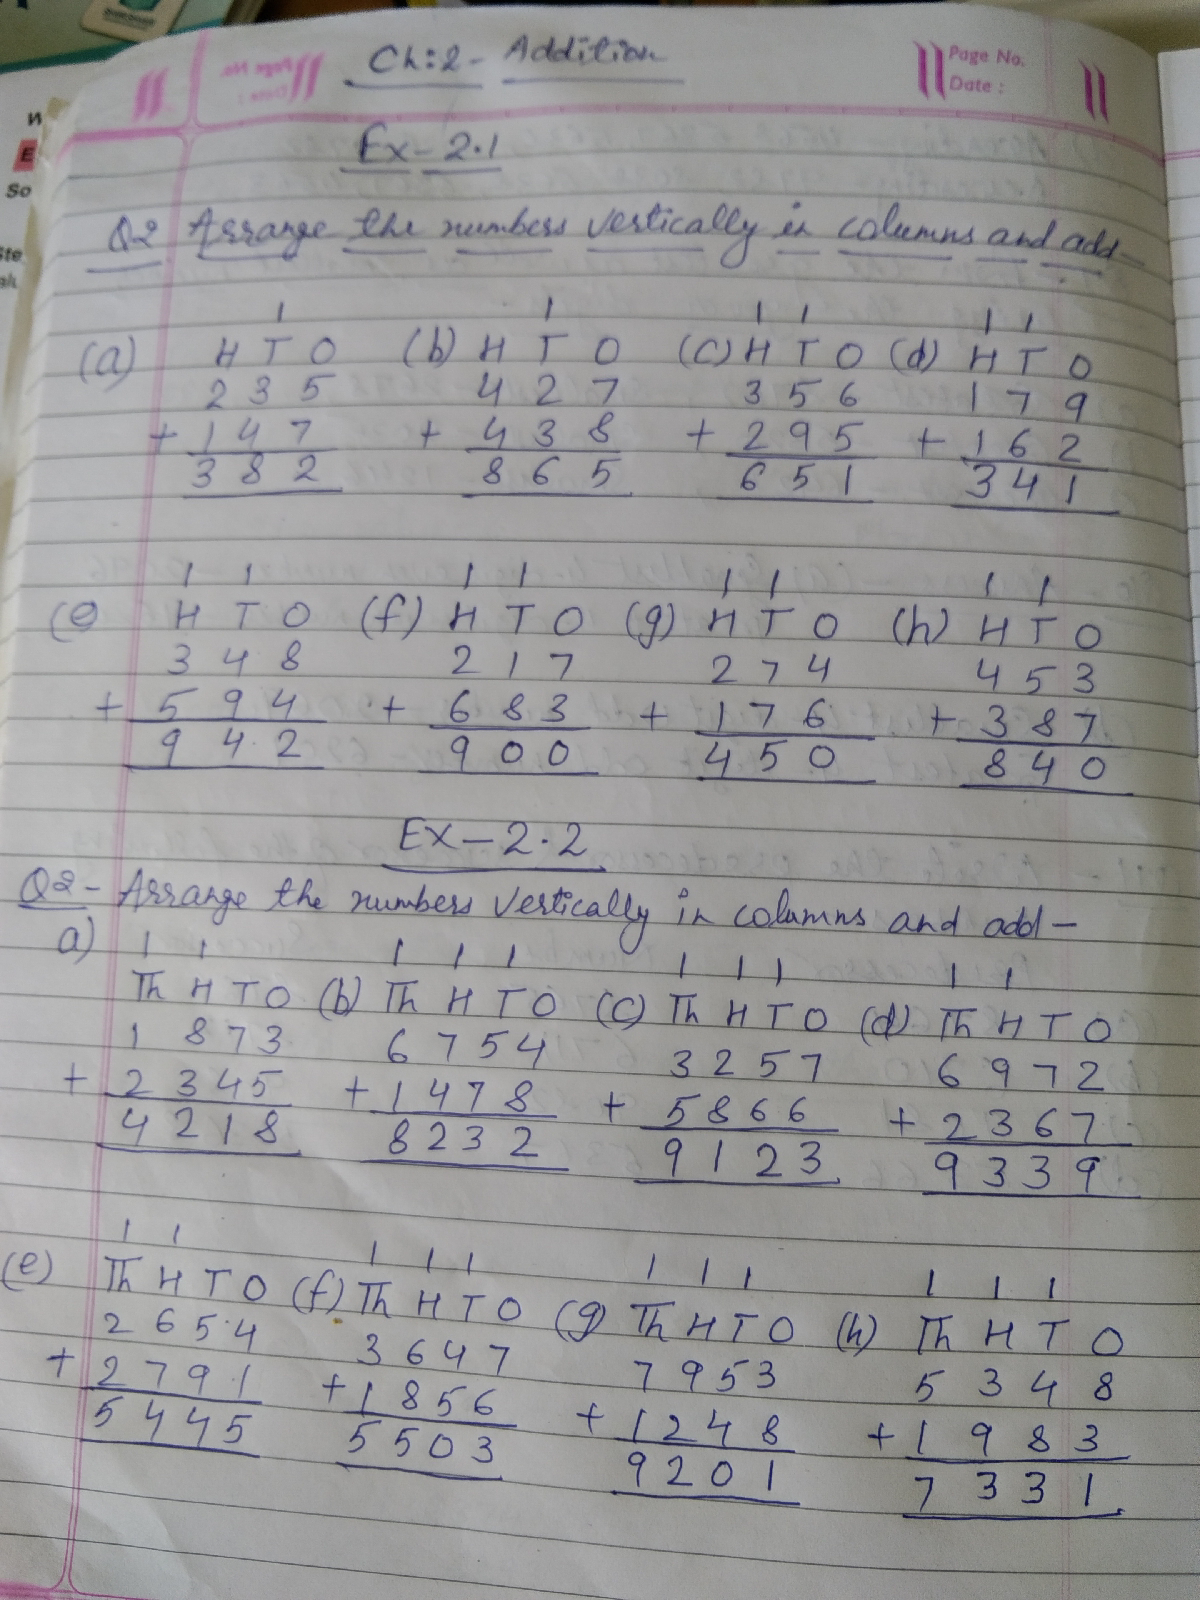 Ch:2- Addition
Page No.
Date :
Ex-2.1
Q2 Arrange the numbers vertically in columns and add-
1 1 1 1 1 1
(a) H T O (b) H T O (c) H T O (d) H T O
2 3 5 4 2 7 3 5 6 1 7 9
+ 1 4 7 + 4 3 8 + 2 9 5 + 1 6 2
3 8 2 8 6 5 6 5 1 3 4 1
1 1 1 1 1 1 1 1
(e H T O (f) H T O (g) H T O (h) H T O
3 4 8 2 1 7 2 7 4 4 5 3
+ 5 9 4 + 6 8 3 + 1 7 6 + 3 8 7
9 4 2 9 0 0 4 5 0 8 4 0
Ex-2.2
Q2- Arrange the numbers vertically in columns and add-
a) 1 1 1 1 1 1 1 1 1 1
Th H T O (b) Th H T O (c) Th H T O (d) Th H T O
1 8 7 3 6 7 5 4 3 2 5 7 6 9 7 2
+ 2 3 4 5 + 1 4 7 8 + 5 8 6 6 + 2 3 6 7
4 2 1 8 8 2 3 2 9 1 2 3 9 3 3 9
1 1 1 1 1 1 1 1 1 1 1
(e) Th H T O (f) Th H T O (g) Th H T O (h) Th H T O
2 6 5 4 3 6 4 7 7 9 5 3 5 3 4 8
+ 2 7 9 1 + 1 8 5 6 + 1 2 4 8 + 1 9 8 3
5 4 4 5 5 5 0 3 9 2 0 1 7 3 3 1